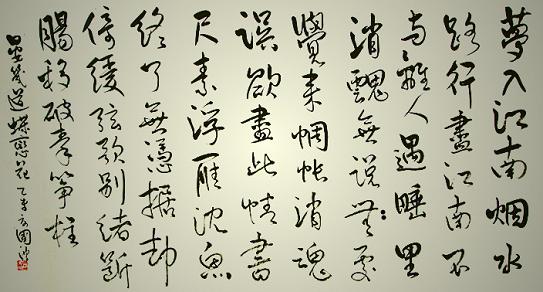 夢入江南烟水
路行盡江南不
与離人遇睡里
消魂無說處
覺来惆帐消魂
誤欲盡此情書
尺素浮雁沈魚
終了無憑據却
倚緩弦歌别緒斷
腸移破秦筝柱
晏幾道蝶恋花